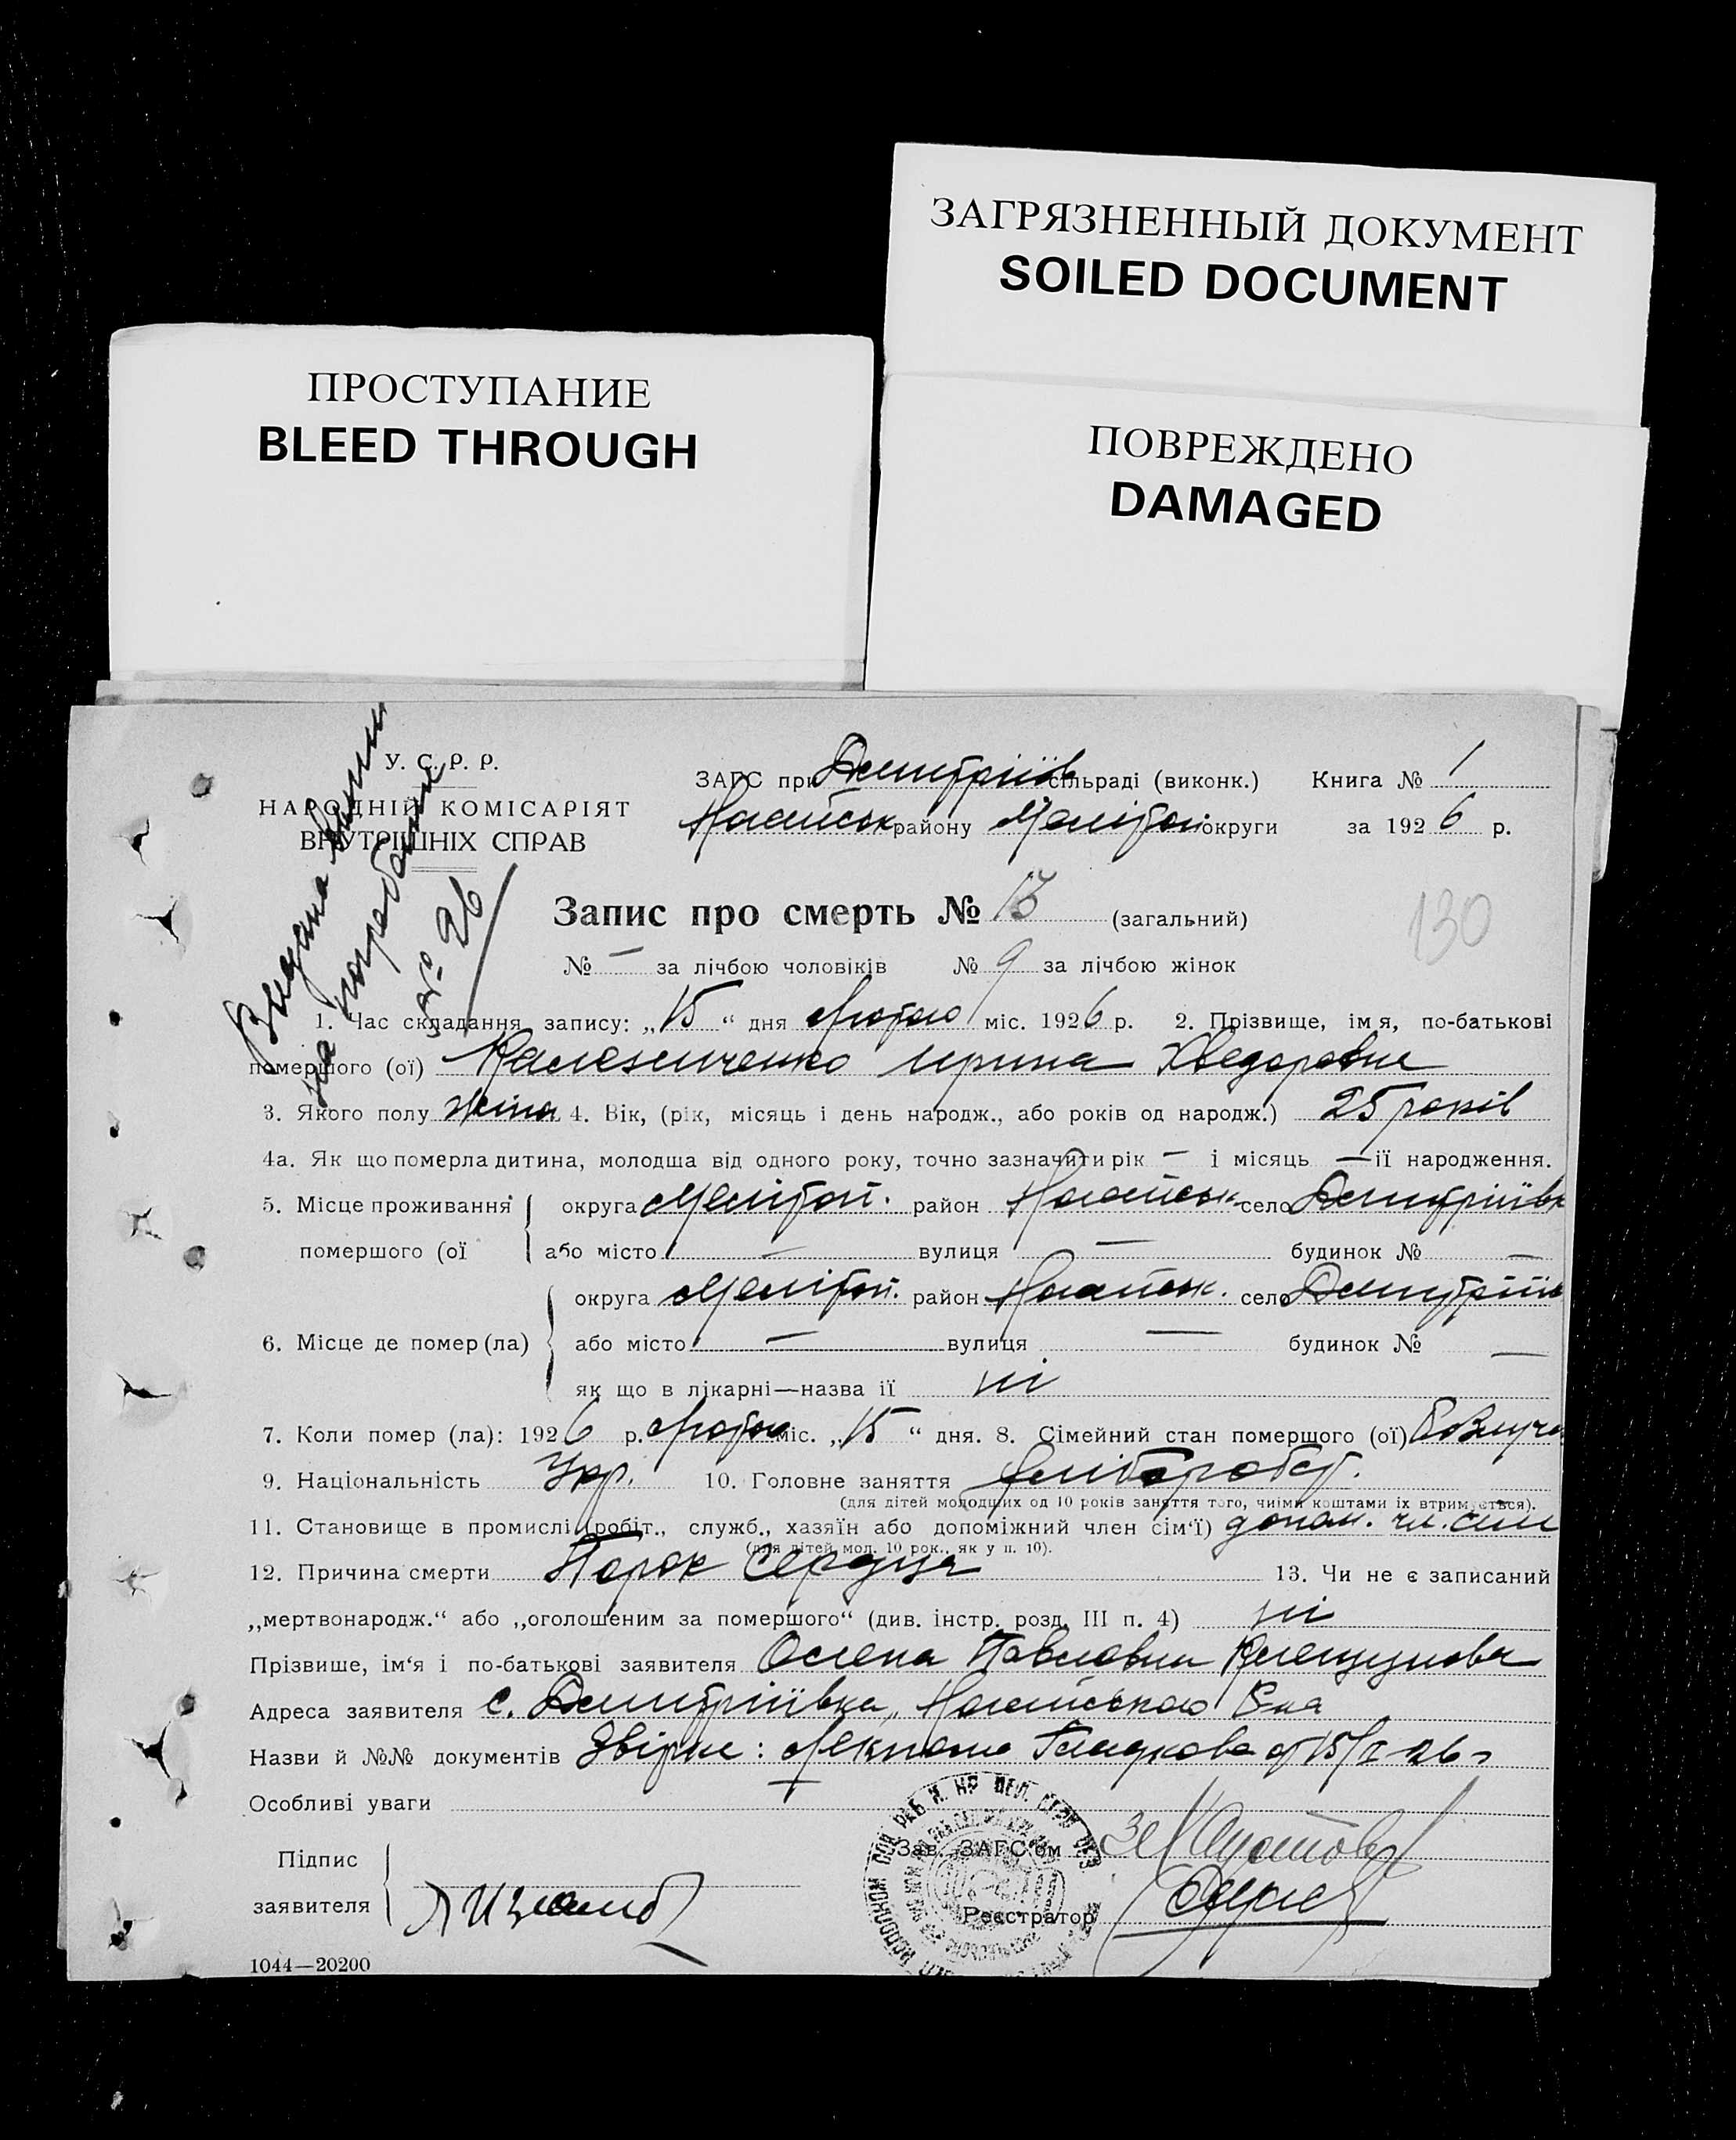 ЗАГРЯЗНЕННЫЙ ДОКУМЕНТ
SOILED DOCUMENT
ПРОСТУПАНИЕ
BLEED THROUGH
ПОВРЕЖДЕНО
DAMAGED
У. С. Р. Р.
НАРОДНІЙ КОМІСАРІЯТ
ВНУТРІШНІХ СПРАВ
на погребение
№ 26
ЗАГС при Дмитріів сільраді (виконк.) Книга № 1
Ногайськ району Мелітоп округи за 1926 р.
Запис про смерть № 13 (загальний)
130
№ — за лічбою чоловіків № 9 за лічбою жінок
1. Час складання запису: „15“ дня Лютого міс. 1926 р. 2. Прізвище, імя, по-батькові
помершого (ої) Ирина Хведоровна
3. Якого полу жіноч. 4. Вік, (рік, місяць і день народж., або років од народж.) 25 років
4а. Як що померла дитина, молодша від одного року, точно зазначити рік — і місяць — ії народження.
5. Місце проживання округа Мелітоп. район Ногайськ село Дмитріівк
помершого (ої або місто — вулиця — будинок № —
округа Мелітоп. район Ногайськ. село Дмитріів
6. Місце де помер (ла) або місто — вулиця — будинок № —
як що в лікарні—назва ії ні
7. Коли помер (ла): 1926 р. Лютого міс. „15“ дня. 8. Сімейний стан помершого (ої)
9. Національність Укр. 10. Головне заняття хліборобст.
(для дітей молодших од 10 років заняття того, чиїми коштами їх втримується).
11. Становище в промислі (робіт., служб., хазяїн або допоміжний член сім'ї) допом. чл. сім
(для дітей мол. 10 рок., як у п. 10).
12. Причина смерти Порок Сердця 13. Чи не є записаний
„мертвонародж.“ або „оголошеним за помершого“ (див. інстр. розд. III п. 4) ні
Прізвише, ім'я і по-батькові заявителя Олена Павловна
Адреса заявителя С. Дмитріівка, Ногайського Р-на
Назви й №№ документів від 15/II-26 г
Особливі уваги
Зав. ЗАГС'ом
Підпис
заявителя
Реєстратор
1044—20200